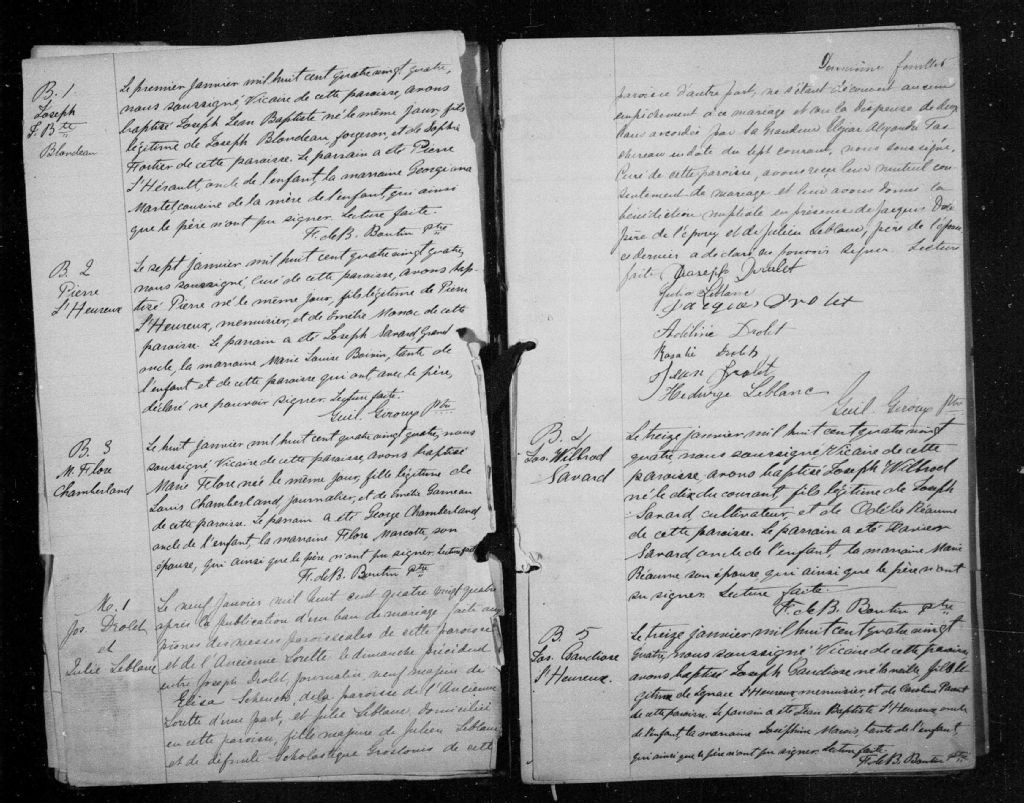 B. 1
Joseph
J. Bte
Blondeau
Le premier Janvier mil huit cent quatre vingt quatre,
nous soussigné, Vicaire de cette paroisse, avons
baptisé Joseph Jean Baptiste né le même jour, fils
légitime de Joseph Blondeau forgeron, et de Sophie
Fortier de cette paroisse. Le parrain a été Pierre
L'Hérault, oncle de l'enfant, la marraine Georgianna
Martel, cousine de la mère de l'enfant, qui ainsi
que le père n'ont pu signer. Lecture faite.
F. de B. Boutin ptre
B. 2
Pierre
L'Heureux
Le sept Janvier mil huit cent quatre vingt quatre,
nous soussigné, Curé de cette paroisse, avons bap-
tisé Pierre né le même jour, fils légitime de Pierre
L'Heureux, menuisier, et de Emélie de cette
paroisse. Le parrain a été Joseph Savard Grand
oncle, la marraine Marie Louise Boivin, tante de
l'enfant et de cette paroisse qui ont avec le père,
déclaré ne pouvoir signer. Lecture faite.
Guil. Giroux Ptre
B. 3
M. Flore
Chamberland
Le huit Janvier mil huit cent quatre vingt quatre, nous
soussigné Vicaire de cette paroisse, avons baptisé
Marie Flore née le même jour, fille légitime de
Louis Chamberland journalier, et de Emélie Garneau
de cette paroisse. Le parrain a été George Chamberland
oncle de l'enfant, la marraine Flore Marcotte, son
épouse, qui ainsi que le père n'ont pu signer. Lecture faite
F. de B. Boutin ptre
M. 1
Jos. Drolet
et
Julie Leblanc
Le neuf Janvier mil huit cent quatre vingt quatre
après la publication d'un ban de mariage faite aux
prônes des messes paroissiales de cette paroisse
et de l'Ancienne Lorette le dimanche précédent
entre Joseph Drolet, journalier, veuf majeur de
Elisa de la paroisse de l'Ancienne
Lorette d'une part, et Julie Leblanc domiciliée
en cette paroisse, fille majeure de Julien Leblanc
et de défunte Scholastique de cette
feuillet
paroisse d'autre part, ne s'étant découvert aucun
empêchement à ce mariage et vu la dispense de deux
bans accordée par Sa Grandeur Elzear Alexandre Tas
chereau en date du sept courant, nous soussigné,
Curé de cette paroisse, avons reçu leur mutuel con
sentement de mariage et leur avons donné la
bénédiction nuptiale en présence de Jacques Drolet
père de l'époux et de Julien Leblanc, père de l'épouse
ce dernier a déclaré ne pouvoir signer. Lecture
faite Joseph Drolet
Julie Leblanc
Jacques Drolet
Adéline Drolet
Rosalie Drolet
Jean Drolet
Hedwige Leblanc
Guil. Giroux Ptre
B. 4
Jos. Wilbrod
Savard
Le treize janvier mil huit cent quatre vingt
quatre nous soussigné Vicaire de cette
paroisse, avons baptisé Joseph Wilbrod
né le dix du courant, fils légitime de Joseph
Savard cultivateur, et de Odélie Réaume
de cette paroisse. Le parrain a été Xavier
Savard oncle de l'enfant, la marraine Marie
Réaume son épouse qui ainsi que le père n'ont
su signer. Lecture faite.
F. de B. Boutin ptre
B. 5
Jos. Gaudiose
L'Heureux.
Le treize janvier mil huit cent quatre vingt
quatre, nous soussigné Vicaire de cette paroisse
avons baptisé Joseph Gaudiose né la veille, fils lé
gitime de Ignace L'Heureux menuisier, et de Caroline Parent
de cette paroisse. Le parrain a été Jean Baptiste L'Heureux oncle
de l'enfant la marraine Joséphine Marois, tante de l'enfant,
qui ainsi que le père n'ont pu signer. Lecture faite.
F. de B. Boutin ptre